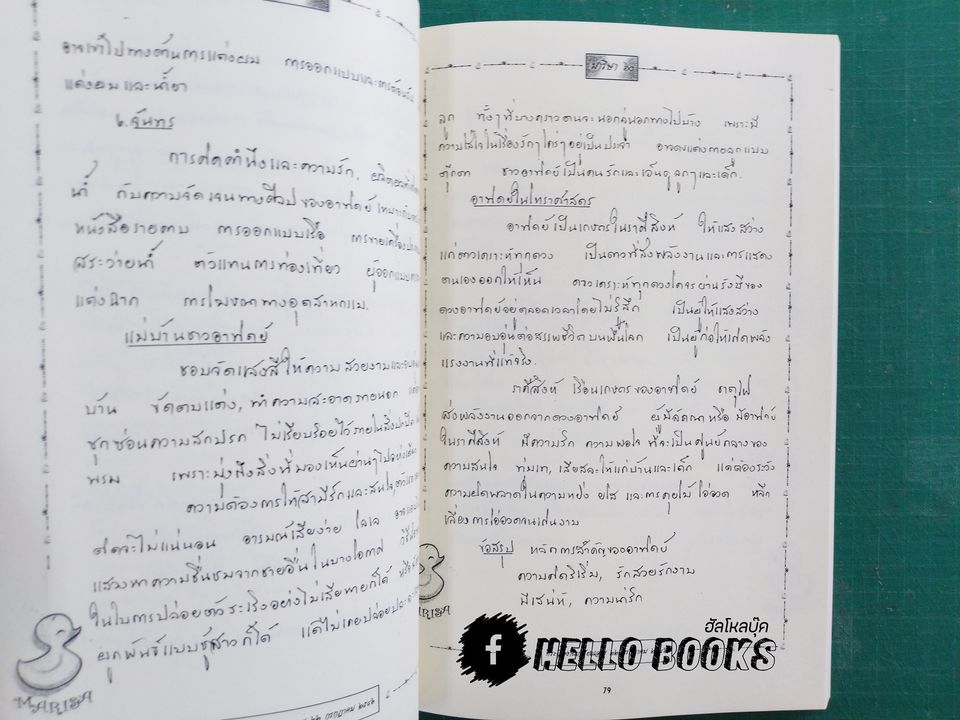 อาจเข้าไปทางด้านการแต่งผม การออกแบบและการตัดเย็บ
แต่งผมและหน้าตา
๖. จันทร์
การคิดคำนึงและความรัก,
น้ำ กับความจัดเจนทางศิลปของอาทิตย์
หนังสือรายคาบ การออกแบบเรือ การขายเครื่อง
สระว่ายน้ำ ตัวแทนการท่องเที่ยว ผู้ออกแบบ
แต่งฉาก การโฆษณาทางอุตสาหกรรม.
แม่บ้านชาวอาทิตย์
ชอบจัดแสงสีให้ความสวยงามและ
บ้าน ขัดตบแต่ง, ทำความสะอาดภายนอก
ซุกซ่อนความสกปรก ไม่เรียบร้อยไว้ภายใน
พรม เพราะมุ่งถึงสิ่งที่มองเห็นผ่านๆไป
ความต้องการให้สามีรักและสนใจ
คิดจะไม่แน่นอน อารมณ์เสียง่าย ใจเจ
แสวงหาความชื่นชมจากชายอื่นในบางโอกาส
ในการปล่อยตัวระเริงอย่างไม่เสียหายก็ได้ หรือ
ผูกพันธ์แบบชู้สาวก็ได้ แต่ไม่เคยปล่อยปละ
MARISA
กรกฎาคม ๒๕๔๖
มาริษา ๖๐
ลูก ทั้งๆที่บางคราวตนจะนอกลู่นอกทางไปบ้าง เพราะมี
ความใส่ใจในเรื่องรักๆใคร่ๆอยู่เป็นประจำ อาจตบแต่งกายลูกแบบ
ตุ๊กตา ชาวอาทิตย์เป็นคนรักและเอ็นดูลูกๆและเด็ก.
อาทิตย์ในโหราศาสตร์
อาทิตย์เป็นเกษตรในราศีสิงห์ ให้แสงสว่าง
แก่ดาวเคราะห์ทุกดวง เป็นดาวที่ส่งพลังงานและการแสดง
ตนเองออกให้เห็น ดาวเคราะห์ทุกดวงโคจรผ่านรังสีของ
ดวงอาทิตย์อยู่ตลอดเวลาโดยไม่รู้สึก เป็นผู้ให้แสงสว่าง
และความอบอุ่นต่อสรรพชีวิตบนพื้นโลก เป็นผู้ก่อให้เกิดพลัง
แรงงานที่แท้จริง.
ราศีสิงห์ เรือนเกษตรของอาทิตย์ ธาตุไฟ
ส่งพลังงานออกจากดวงอาทิตย์ ผู้มีลัคณาหรือมีอาทิตย์
ในราศีสิงห์ มีความรัก ความพอใจ ที่จะเป็นศูนย์กลางของ
ความสนใจ ทุ่มเท, เสียสละให้แก่บ้านและเด็ก แต่ต้องระวัง
ความผิดพลาดในความหยิ่ง ยโส และการคุยโม้โอ้อวด หลีก
เลี่ยงการโอ้อวดจนเกินงาม
ข้อสรุป หลักการสำคัญของอาทิตย์
ความคิดริเริ่ม, รักสวยรักงาม
มีเสน่ห์, ความน่ารัก
MARISA
ฮัลโหลบุ๊ค
f HELLO BOOKS
79